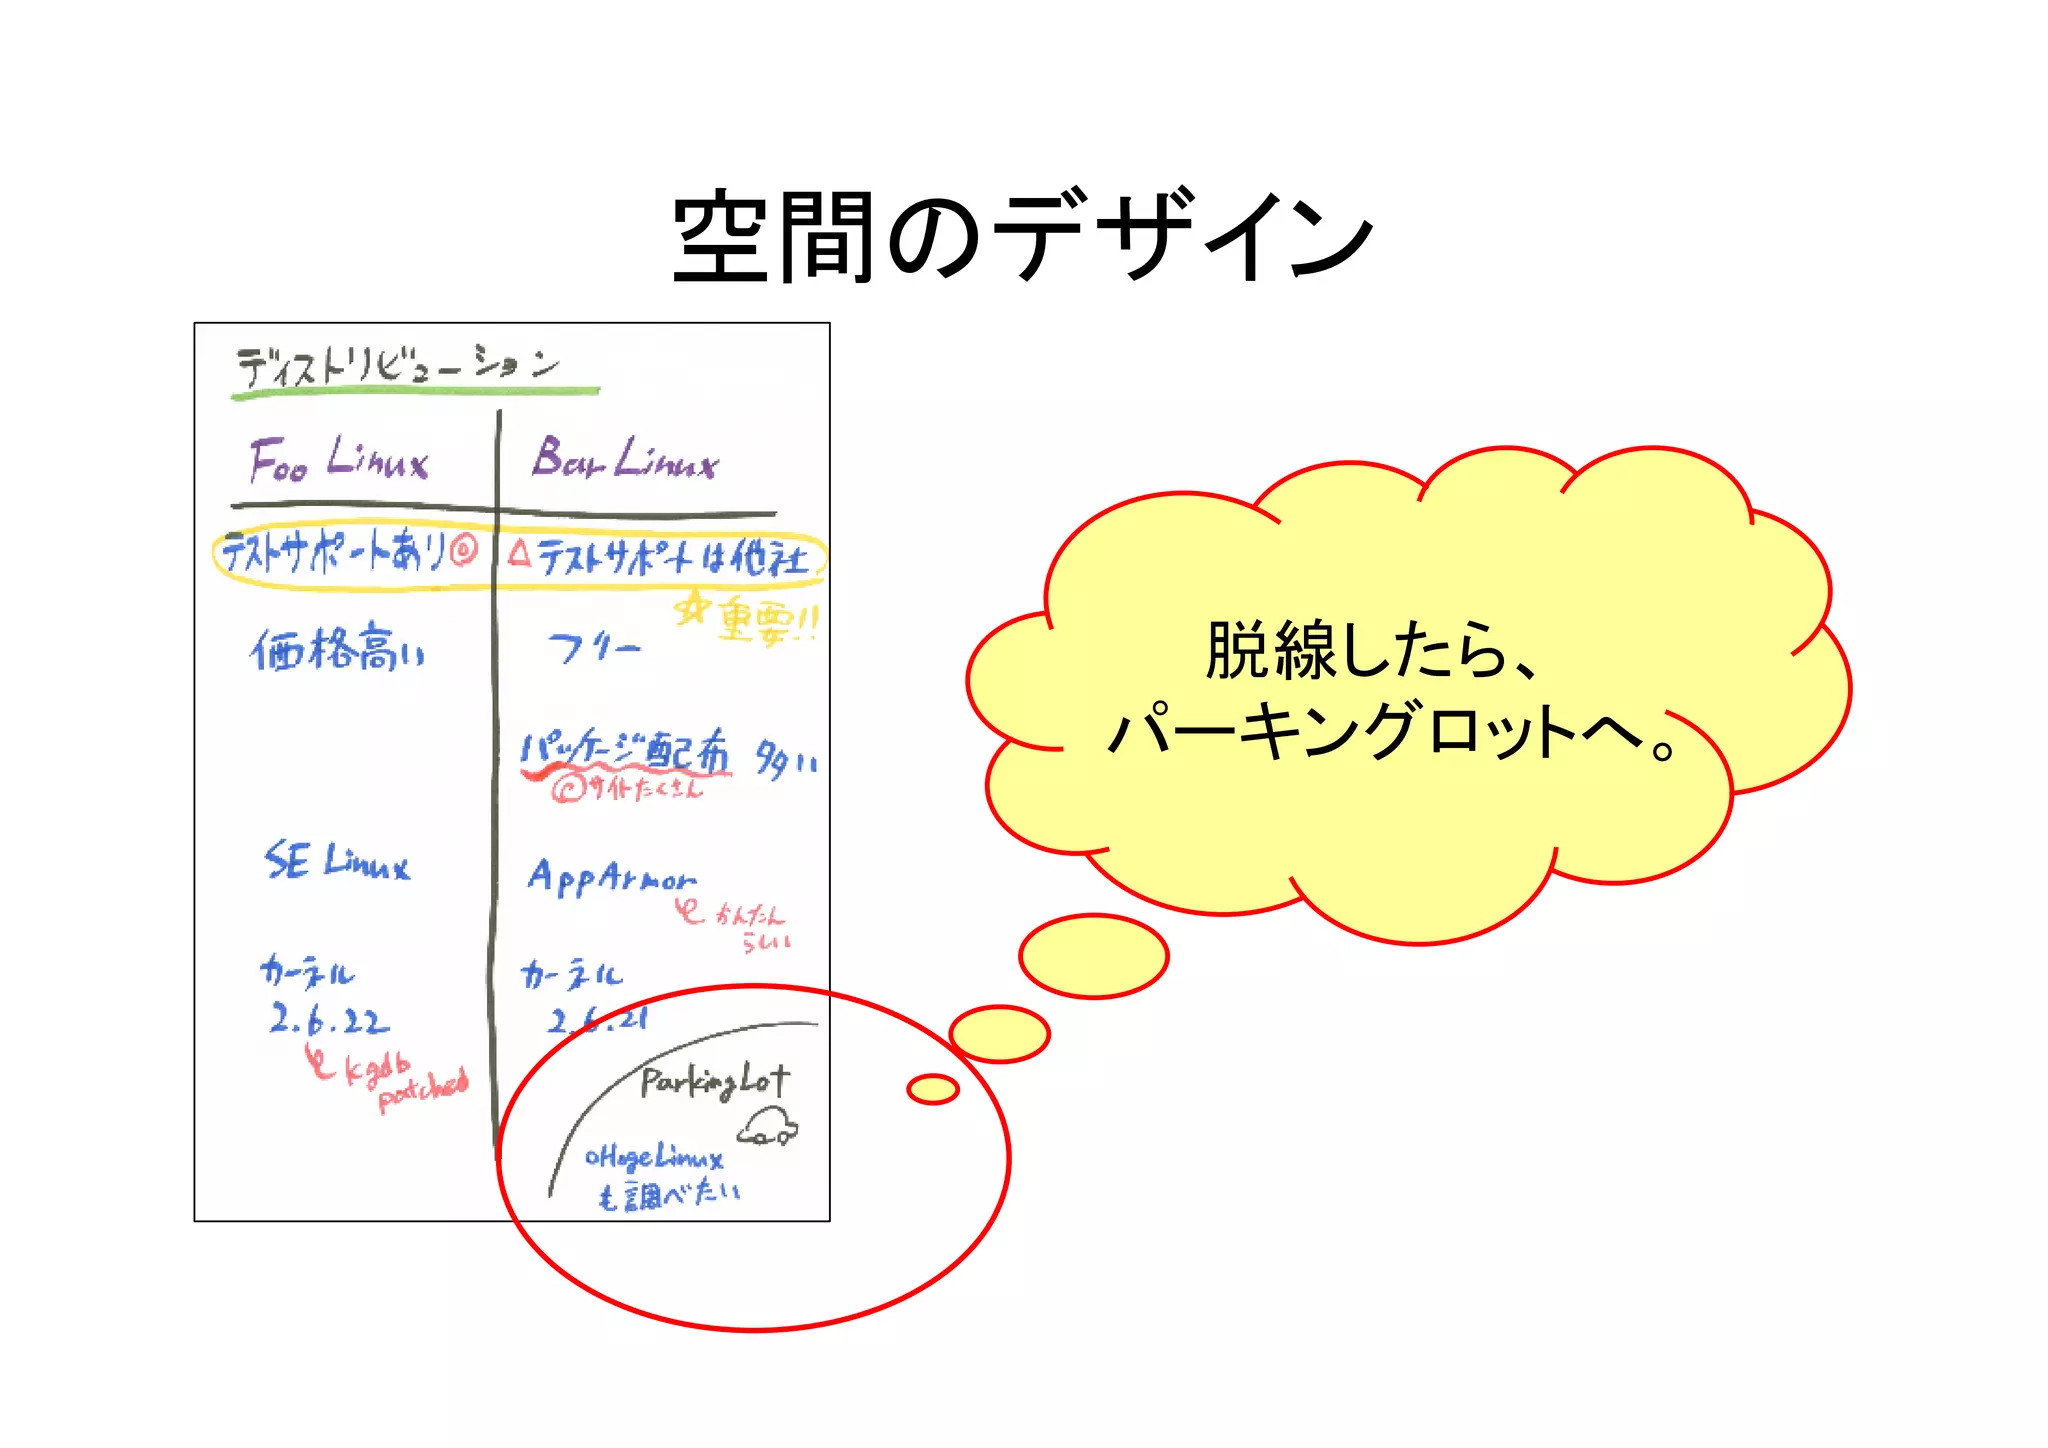 空間のデザイン
ディストリビューション
Foo Linux
Bar Linux
テストサポートあり◎
△テストサポートは他社
☆重要!!
価格高い
フリー
パッケージ配布 多い
◎サイトたくさん
SE Linux
AppArmor
かんたん
らしい
カーネル
2.6.22
kgdb
patched
カーネル
2.6.21
ParkingLot
○HogeLinux
も調べたい
脱線したら、
パーキングロットへ。